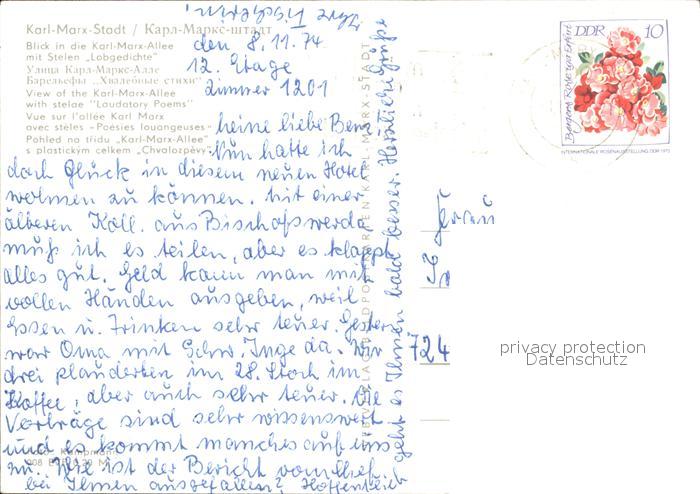 Karl-Marx-Stadt / Карл-Маркс-штадт
Blick in die Karl-Marx-Allee
mit Stelen „Lobgedichte"
Улица Карл-Маркс-Алле
Барельефы „Хвалебные стихи"
View of the Karl-Marx-Allee
with stelae "Laudatory Poems"
Vue sur l'allée Karl Marx
avec stèles - Poésies louangeuses -
Pohled na třídu „Karl-Marx-Allee"
s plastickým celkem „Chvalozpěvy"
den 8.11.74
12. Etage
Zimmer 1201
Meine liebe
Nun hatte ich
doch Glück in diesem neuen Hotel
wohnen zu können. Mit einer
älteren Koll. aus Bischofswerda
muß ich es teilen, aber es klappt
alles gut. Geld kann man mit
vollen Händen ausgeben, weil
Essen u. Trinken sehr teuer. Gestern
war Oma mit Schw. Inge da. Wir
drei plauderten im 28. Stock im
Kaffee, aber auch sehr teuer. Die
Vorträge sind sehr wissenswert
und es kommt manches auf uns
zu. Wie ist der Bericht vom
bei Ihnen ausgefallen? Hoffentlich
geht es Ihnen bald besser. Herzliche Grüße
Ihre
DDR 10
INTERNATIONALE ROSENAUSSTELLUNG DDR 1972
724
privacy protection
Datenschutz